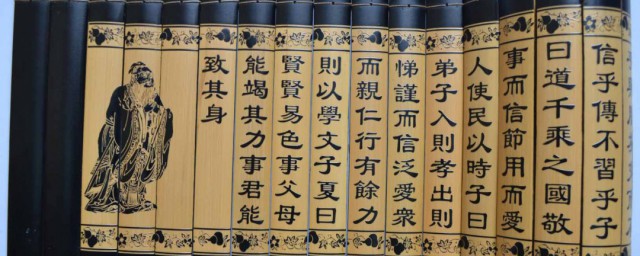 信乎傳不習乎子
曰道千乘之國敬
事而信節用而愛
人使民以時子曰
弟子入則孝出則
悌謹而信泛愛衆
而親仁行有餘力
則以學文子夏曰
賢賢易色事父母
能竭其力事君能
致其身